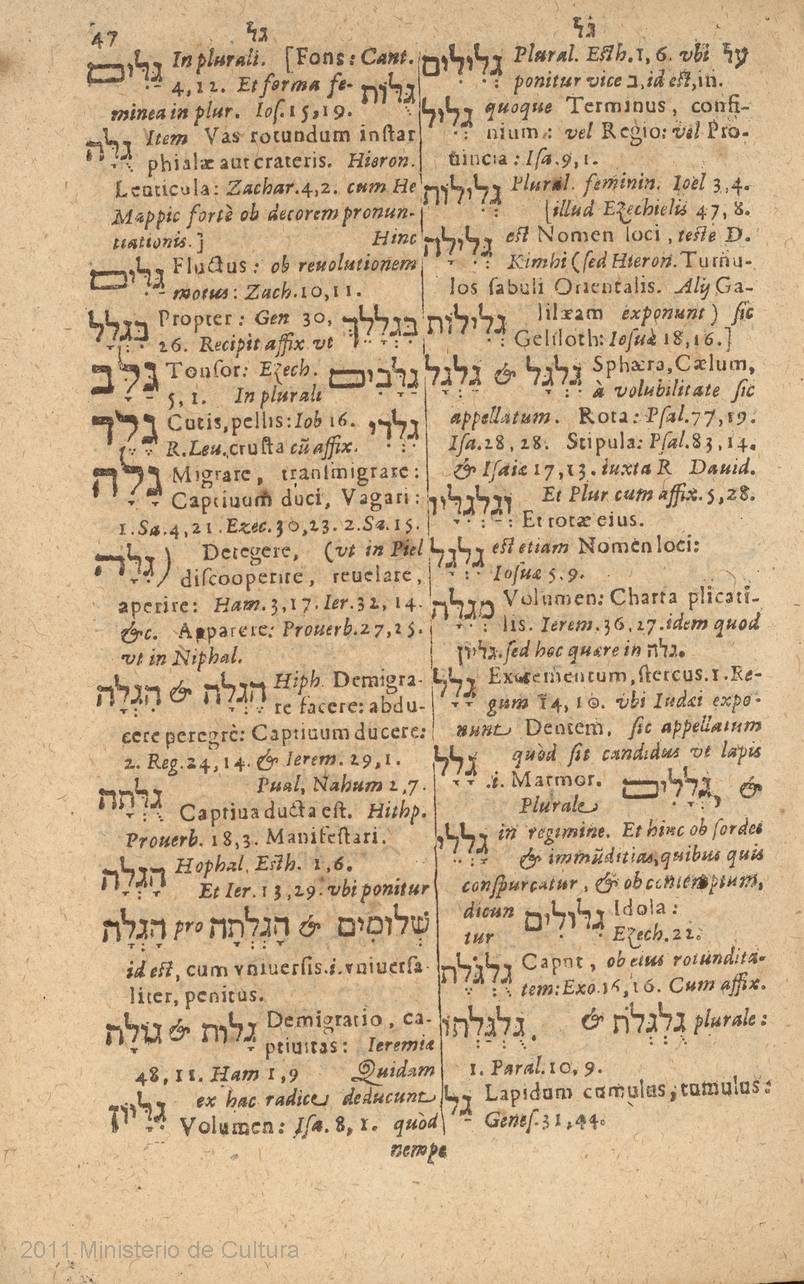 47 גל גל
גלים In plurali. [Fons: Cant.
4,12. Et forma fe- גלות
minea in plur. Ios. 15,19.
גלה Item Vas rotundum instar
phialæ aut crateris. Hieron.
Lenticula: Zachar. 4,2. cum He
Mappic fortè ob decorem pronun-
tiationis.] Hinc
גלים Fluctus: ob reuolutionem
motus: Zach. 10,11.
בגלל Propter: Gen 30, בגללך
26. Recipit affix vt
גלב Tonsor: Ezech. גלבים
5,1. In plurali
גלד Cutis, pellis: Iob 16. גלדי
R. Leu. crusta cũ affix.
גלה Migrare, transmigrare:
Captiuum duci, Vagari:
1. Sa. 4,21. Exec. 30,23. 2. Sa. 15.
גלה) Detegere, (vt in Piel
discooperire, reuelare,
aperire: Ham. 3,17. Ier. 32, 14.
&c. Apparere: Prouerb. 27,25.
vt in Niphal.
הגלה & הגלה Hiph. Demigra-
re facere: abdu-
cere peregrè: Captiuum ducere:
2. Reg. 24,14. & Ierem. 29,1.
גלתה Pual, Nahum 2,7.
Captiua ducta est. Hithp.
Prouerb. 18,3. Manifestari.
הגלה Hophal, Esth. 1,6.
Et Ier. 13,29. vbi ponitur
הגלה pro הגלתה & שלומים
id est, cum vniuersis .i. vniuersa-
liter, penitus.
גולה & גלות Demigratio, ca-
ptiuitas: Ieremiæ
48,11. Ham 1,9 Quidam
גליון ex hac radice deducunt
Volumen: Isa. 8,1. quòd
nempe
גלילים Plural. Esth. 1, 6. vbi על
ponitur vice ב, id est, in.
גליל quoque Terminus, confi-
nium: vel Regio: vel Pro-
uincia: Isa. 9,1.
גלילות Plural. feminin. Ioel 3,4.
[illud Ezechielis 47,8.
גלילה est Nomen loci, teste D.
Kimhi (sed Hieron. Tumu-
los sabuli Orientalis. Alij Ga-
גלילות lilæam exponunt) sic
Geliloth: Iosuæ 18,16.]
גלגל & גלגל Sphæra, Cælum,
à volubilitate sic
appellatum. Rota: Psal. 77,19.
Isa. 28,28. Stipula: Psal. 83,14.
& Isaiæ 17,13. iuxta R Dauid.
וגלגליו Et Plur cum affix. 5,28.
Et rotæ eius.
גלגל est etiam Nomen loci:
Iosuæ 5.9.
מגלה Volumen: Charta plicati-
lis. Ierem. 36,27. idem quod
גליון. sed hoc quære in גלה.
גלל Excrementum, stercus. 1. Re-
gum 14,10. vbi Iudæi expo-
nunt Dentem, sic appellatum
גלל quòd sit candidus vt lapis
.i. Marmor. גללים &
Plurale
גללי in regimine. Et hinc ob sordes
& immũditias, quibus quis
conspurcatur, & ob contemptum,
dicun גלולים Idola:
tur Ezech. 22.
גלגלת Caput, ob eius rotundita-
tem: Exo. 16,16. Cum affix.
גלגלתו & גלגלת plurale:
1. Paral. 10, 9.
גל Lapidum cumulus, tumulus:
Genes. 31,44.
2011 Ministerio de Cultura